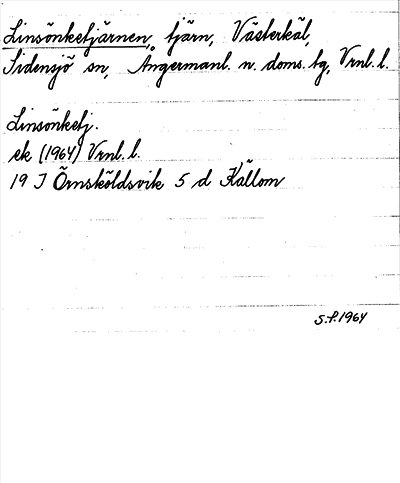 Linsönketjärnen, tjärn, Västerkäl,
Sidensjö sn, Ångermanl. n. doms. tg, Vrnl. l.
Linsönketj.
ek (1964) Vrnl. l.
19 J Örnsköldsvik 5 d Källom
S.f. 1964